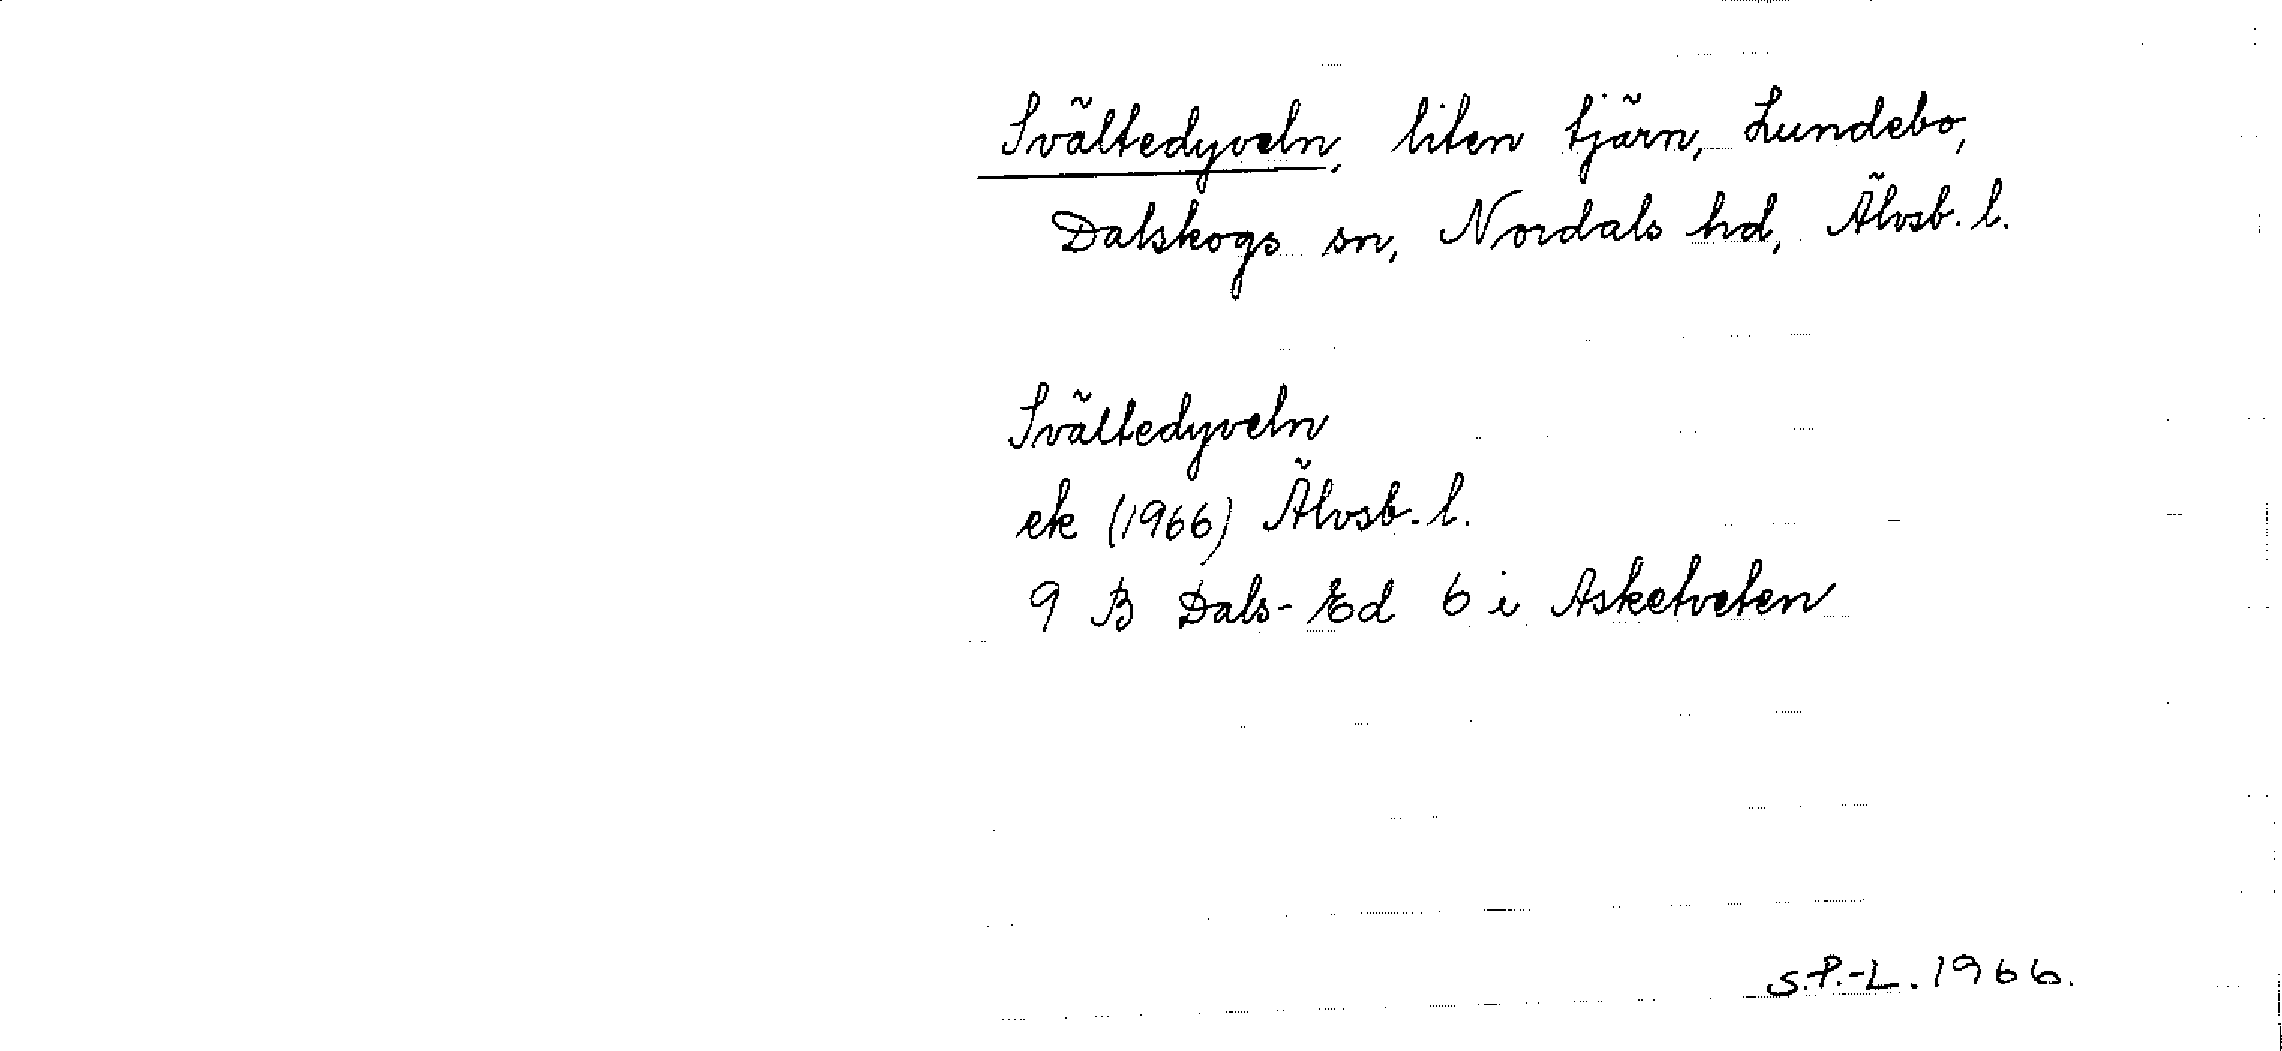 Svältedyveln, liten tjärn, Lundebo,
Dalskogs sn, Nordals hd, Älvsb. l.
Svältedyveln
ek (1966) Älvsb. l.
9 B Dals-Ed 6 i Asketveten
S.P.-L. 1966.